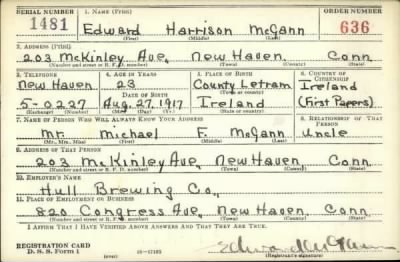 SERIAL NUMBER 1. NAME (Print) ORDER NUMBER
1481 Edward Harrison McGann 636
(First) (Middle) (Last)
2. ADDRESS (Print)
203 McKinley Ave, New Haven, Conn.
(Number and street or R. F. D. number) (Town) (County) (State)
3. TELEPHONE 4. AGE IN YEARS 5. PLACE OF BIRTH 6. COUNTRY OF CITIZENSHIP
New Haven 23 County Letram Ireland
DATE OF BIRTH (Town or county)
5-0227 Aug. 27, 1917 Ireland (First Papers)
(Exchange) (Number) (Mo.) (Day) (Yr.) (State or country)
7. NAME OF PERSON WHO WILL ALWAYS KNOW YOUR ADDRESS 8. RELATIONSHIP OF THAT PERSON
Mr. Michael F. McGann Uncle
(Mr., Mrs., Miss) (First) (Middle) (Last)
9. ADDRESS OF THAT PERSON
203 McKinley Ave, New Haven, Conn.
(Number and street or R. F. D. number) (Town) (County) (State)
10. EMPLOYER'S NAME
Hull Brewing Co.,
11. PLACE OF EMPLOYMENT OR BUSINESS
820 Congress Ave, New Haven, Conn
(Number and street or R. F. D. number) (Town) (County) (State)
I AFFIRM THAT I HAVE VERIFIED ABOVE ANSWERS AND THAT THEY ARE TRUE.
REGISTRATION CARD
D. S. S. Form 1 (over) Edward McGann
(Registrant's signature)